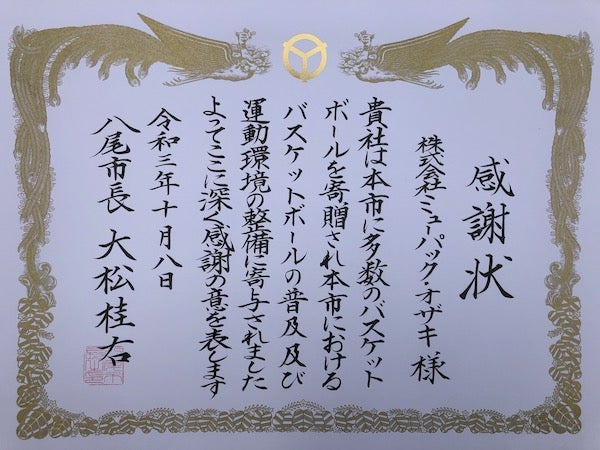 感謝状
株式会社ミューパック・オザキ 様
貴社は本市に多数のバスケット
ボールを寄贈され本市における
バスケットボールの普及及び
運動環境の整備に寄与されました
よってここに深く感謝の意を表します
令和三年十月八日
八尾市長 大松桂右